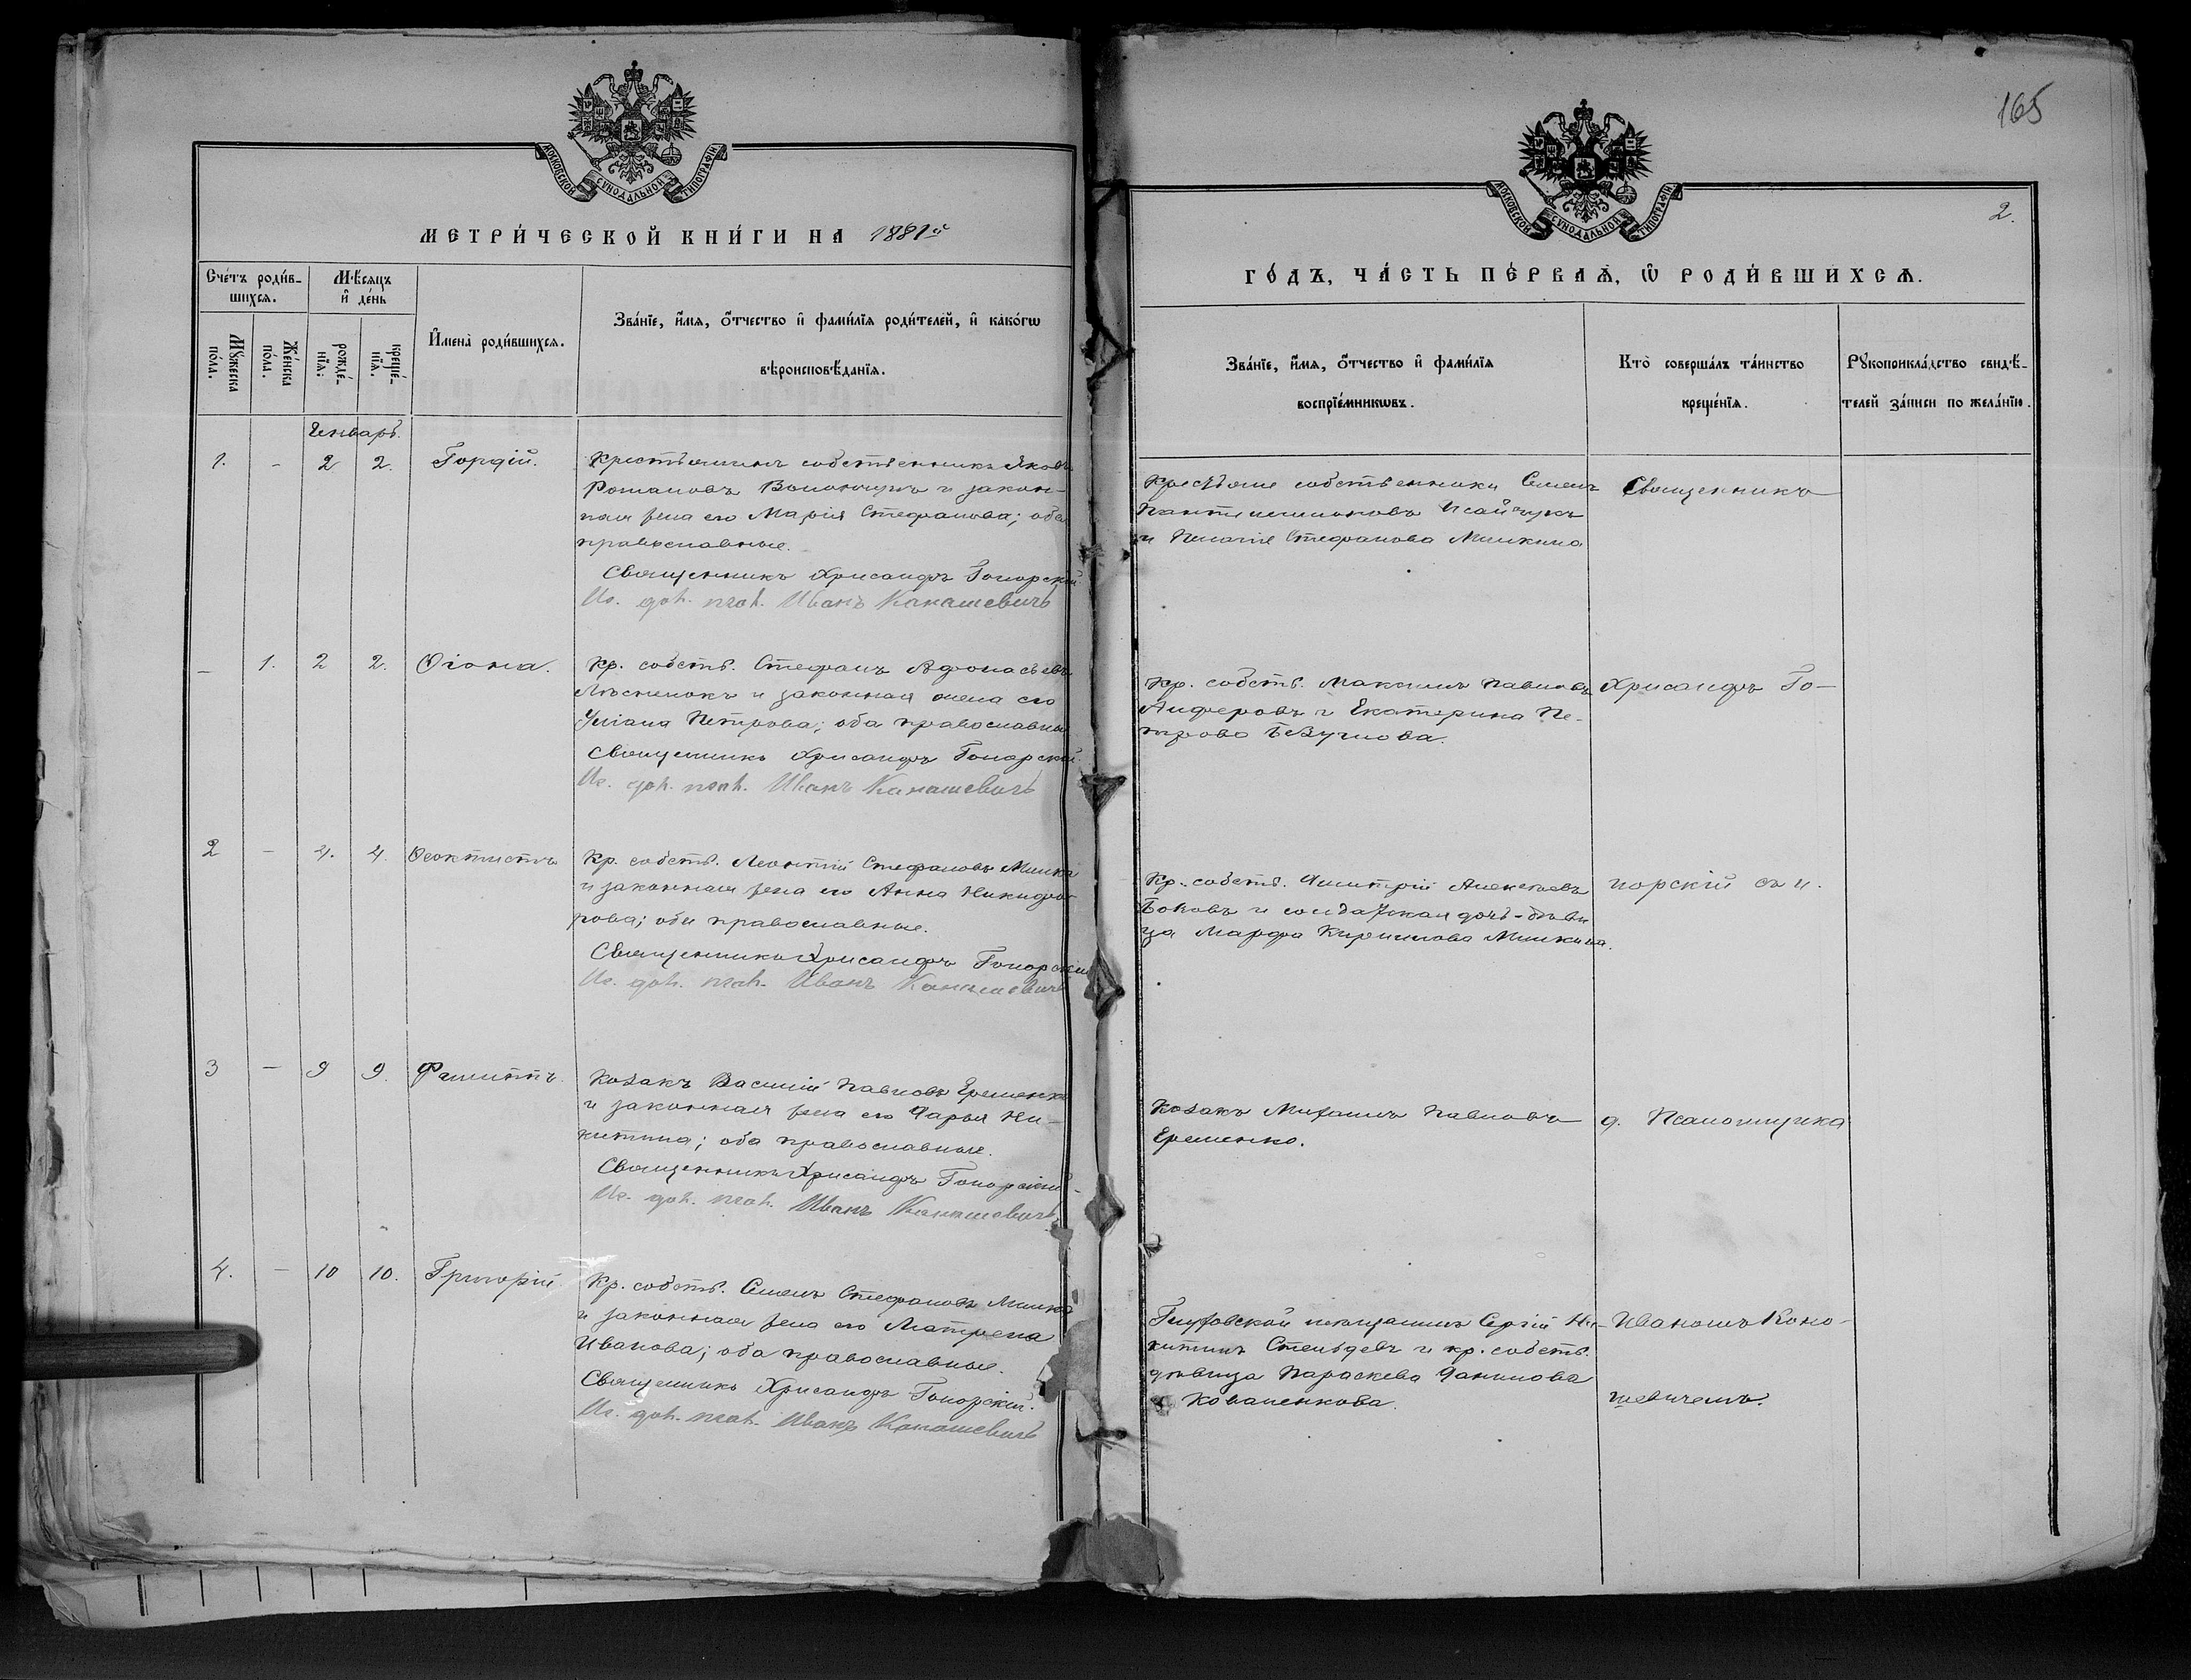 МОСКОВСКОЙ СУНОДАЛЬНОЙ ТИПОГРАФІИ
МЕТРИ́ЧЕСКОЙ КНИ́ГИ НА 1881й
Сче́тъ роди́в-
шихсѧ.
Мꙋ́жеска
по́ла.
Же́нска
по́ла.
Мѣ́сѧцъ
и҆ де́нь
рожде́-
нїѧ:
креще́-
нїѧ.
И҆мена̀ роди́вшихсѧ.
Зва́нїе, и҆́мѧ, ѻ҆́тчество и҆ фами́лїѧ роди́телей, и҆ како́гѡ
вѣроисповѣ́данїѧ.
Генварь.
1. - 2 2. Гордій. Крестьянинъ собственникъ Яковъ
Романовъ и закон-
ная жена его Марія Стефанова; оба
православные.
Священникъ Хрисанфъ Гонорскій.
Ис. Иванъ Канашевичъ
- 1. 2 2. Ѳіона. Кр. собств. Стефанъ Афонасьевъ
и законная жена его
Уліана Петрова; оба православные
Священникъ Хрисанфъ Гонорскій.
Ис. Иванъ Канашевичъ
2 - 4. 4. Ѳеоктистъ Кр. собств. Леонтій Стефановъ Милка
и законная жена его Анна Никифо-
рова; оби православные.
Священникъ Хрисанфъ Гонорскій
Ис. Иванъ Канашевичъ
3 - 9 9. Филиппъ. Козакъ Василій Павловъ Еременко
и законная жена его Дарья Ни-
китина; оба православные.
Священникъ Хрисанфъ Гонорскій
Ис. Иванъ Канашевичъ
4. - 10 10. Григорій Кр. собств. Семенъ Стефановъ Милка
и законная жена его Матрена
Иванова; оба православные.
Священникъ Хрисанфъ Гонорскій.
Ис. Иванъ Канашевичъ
165
МОСКОВСКОЙ СУНОДАЛЬНОЙ ТИПОГРАФІИ
2.
ГО́ДЪ, ЧА́СТЬ ПЕ́РВАѦ, Ѡ҆ РОДИ́ВШИХСѦ.
Зва́нїе, и҆́мѧ, ѻ҆́тчество и҆ фами́лїѧ
воспрїе́мникѡвъ.
Кто̀ соверша́лъ та́инство
креще́нїѧ.
Рꙋкоприкла́дство свидѣ́-
телей за́писи по жела́нїю.
Крестьяне собственники Семенъ
Пантелимоновъ Исайчукъ
и Пелагія Стефанова Милкина
Священникъ
Кр. собств. Максимъ Павловъ
Алферовъ и Екатерина Пе-
трова
Хрисанфъ Го-
Кр. собств. Димитрій Алексѣевъ
Боковъ и солдатская дочь-дѣви
ца Марфа Кирилова Милкина.
норскій съ и.
Козакъ Михаилъ Павловъ
Еременко.
д. Псаломщика
Глуховской мещанинъ Сергій Ни-
китинъ и кр. собств.
дѣвица Параскева Данилова
Коваленкова.
Иваномъ Кона-
шевичемъ.